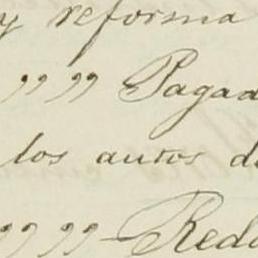 y reforma
,, ,, Pagad
los autos de
,, ,, Reda